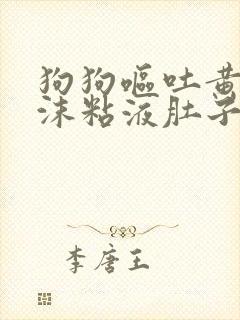 狗狗呕吐黄
沫粘液肚子
李唐王